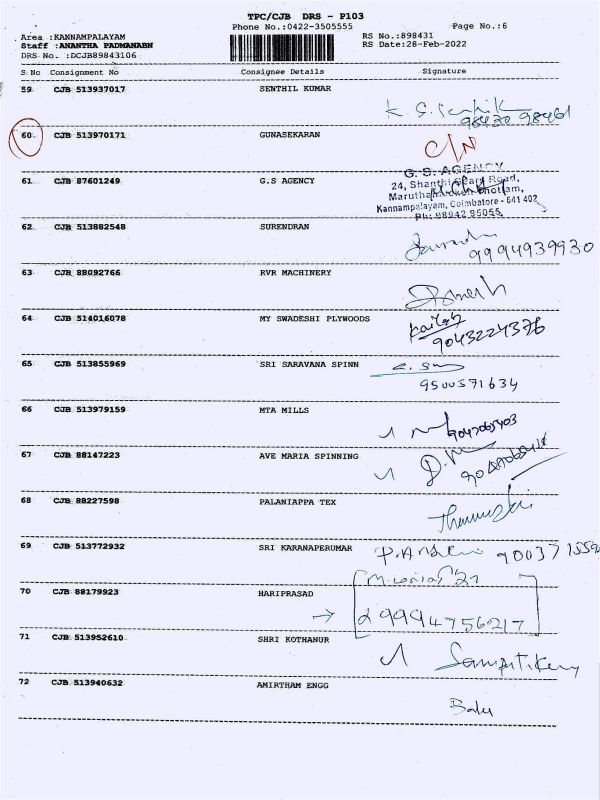 TPC/CJB DRS - P103
Phone No.:0422-3505555 Page No.:6
Area :KANNAMPALAYAM RS No.:898431
Staff :ANANTHA PADMANABN RS Date:28-Feb-2022
DRS No. :DCJB89843106
S No Consignment No Consignee Details Signature
59 CJB 513937017 SENTHIL KUMAR
60 CJB 513970171 GUNASEKARAN
C/N
61 CJB 87601249 G.S AGENCY
G.S. AGENCY
24, Road,
Thottam,
Kannampalayam, Coimbatore - 641 402
Ph: 98942 95055
62 CJB 513882548 SURENDRAN
9994939930
63 CJB 88092766 RVR MACHINERY
Dinesh
64 CJB 514016078 MY SWADESHI PLYWOODS
9043224376
65 CJB 513855969 SRI SARAVANA SPINN
9500571634
66 CJB 513979159 MTA MILLS
67 CJB 88147223 AVE MARIA SPINNING
68 CJB 88227598 PALANIAPPA TEX
69 CJB 513772932 SRI KARANAPERUMAR
70 CJB 88179923 HARIPRASAD
9994756217
71 CJB 513952610 SHRI KOTHANUR
72 CJB 513940632 AMIRTHAM ENGG
Balu